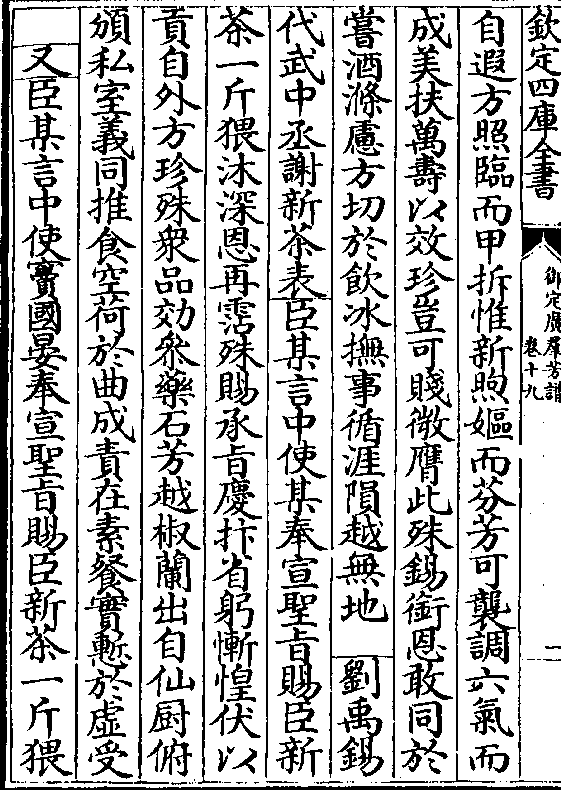 欽定四庫全書
御定廣羣芳譜
卷十九
一
自遐方照臨而甲拆惟新煦嫗而芬芳可襲調六氣而
成美扶萬壽以效珍豈可賤微膺此殊錫銜恩敢同於
嘗酒滌慮方切於飲冰撫事循涯隕越無地 劉禹錫
代武中丞謝新茶表臣某言中使某奉宣聖旨賜臣新
茶一斤猥沐深恩再霑殊賜承旨慶抃省躬慚惶伏以
貢自外方珍殊衆品効參藥石芳越椒蘭出自仙厨俯
頒私室義同推食空荷於曲成責在素餐實慙於虛受
又臣某言中使竇國晏奉宣聖旨賜臣新茶一斤猥